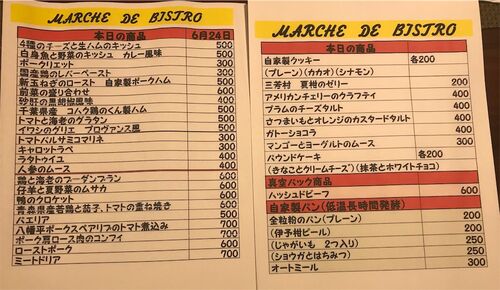 MARCHE DE BISTRO
本日の商品 6月24日
4種のチーズと生ハムのキッシュ 500
白身魚と野菜のキッシュ カレー風味 500
ポークリエット 300
国産鶏のレバーペースト 300
新玉ねぎのロースト 自家製ポークハム 500
前菜の盛り合わせ 600
砂肝の黒胡椒風味 400
千葉県産 コハク鶏のくん製ハム 500
トマトと海老のグラタン 500
イワシのグリエ プロヴァンス風 500
トマトバルサミコマリネ 300
キャロットラペ 300
ラタトゥイユ 400
人参のムース 400
鶏と海老のフーダンフラン 500
仔羊と夏野菜のムサカ 500
鴨のクロケット 600
青森県産若鶏と茄子、トマトの重ね焼き 600
パエリア 500
八幡平ポークスペアリブのトマト煮込み 700
ポーク肩ロース肉のコンフィ 600
ローストポーク 700
ミートドリア 500
MARCHE DE BISTRO
本日の商品
自家製クッキー 各200
(プレーン)(カカオ)(シナモン)
三芳村 夏柑のゼリー 200
アメリカンチェリーのクラフティ 400
プラムのチーズタルト 400
さつまいもとオレンジのカスタードタルト 400
ガトーショコラ 400
マンゴーとヨーグルトのムース 300
パウンドケーキ 各200
(きなことクリームチーズ)(抹茶とホワイトチョコ)
真空パック商品
ハッシュドビーフ 600
自家製パン(低温長時間発酵)
全粒粉のパン(プレーン) 200
(伊予柑ピール) 200
(じゃがいも 2つ入り) 250
(ショウガとはちみつ) 250
オートミール 300